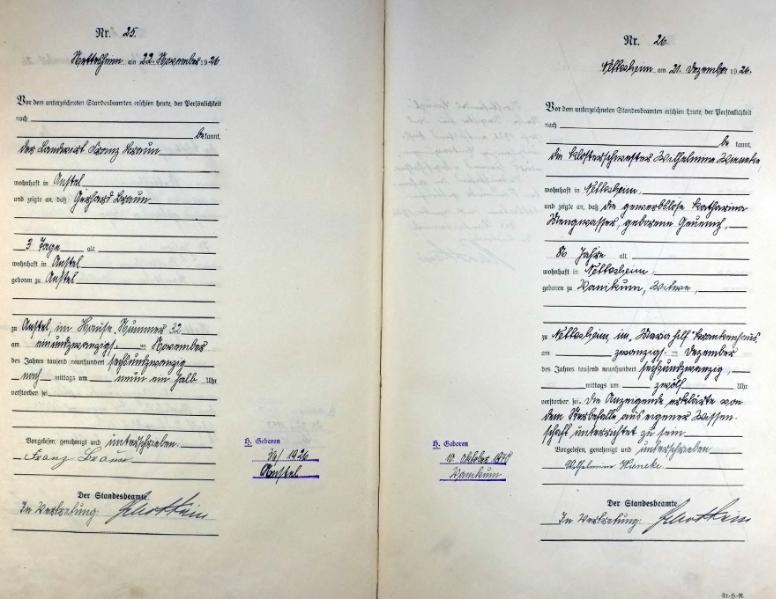 Nr. 25.
Nettesheim am 22. November 1926
Vor dem unterzeichneten Standesbeamten erschien heute, der Persönlichkeit
nach
bekannt,
der Landwirt Franz Braun
wohnhaft in Anstel
und zeigte an, daß Gerhard Braun
3 Tage alt
wohnhaft in Anstel
geboren zu Anstel
zu Anstel, im Hause Nummer 32
am einundzwanzigs- ten November
des Jahres tausend neunhundert sechsundzwanzig
nach mittags um neun ein halb Uhr
verstorben sei.
Vorgelesen, genehmigt und unterschrieben.
Franz Braun
Der Standesbeamte.
In Vertretung:
H. Geboren
1926
Anstel
Nr. 26.
Nettesheim am 21. Dezember 1926.
Vor dem unterzeichneten Standesbeamten erschien heute, der Persönlichkeit
nach
be kannt,
die Klosterschwester Wilhelmine Wieneke
wohnhaft in Nettesheim,
und zeigte an, daß die gewerblose Katharina
geborene
80 Jahre alt,
wohnhaft in Nettesheim,
geboren zu Ramrath, Witwe,
zu Nettesheim, im Mariahilf Krankenhaus
am zwanzigs- ten Dezember
des Jahres tausend neunhundert sechsundzwanzig,
mittags um zwölf Uhr
verstorben sei. Die Anzeigende erklärte von
dem Sterbefalle aus eigener Wissen-
schaft unterrichtet zu sein.
Vorgelesen, genehmigt und unterschrieben
Wilhelmine Wieneke
Der Standesbeamte.
In Vertretung:
H. Geboren
10. Oktober